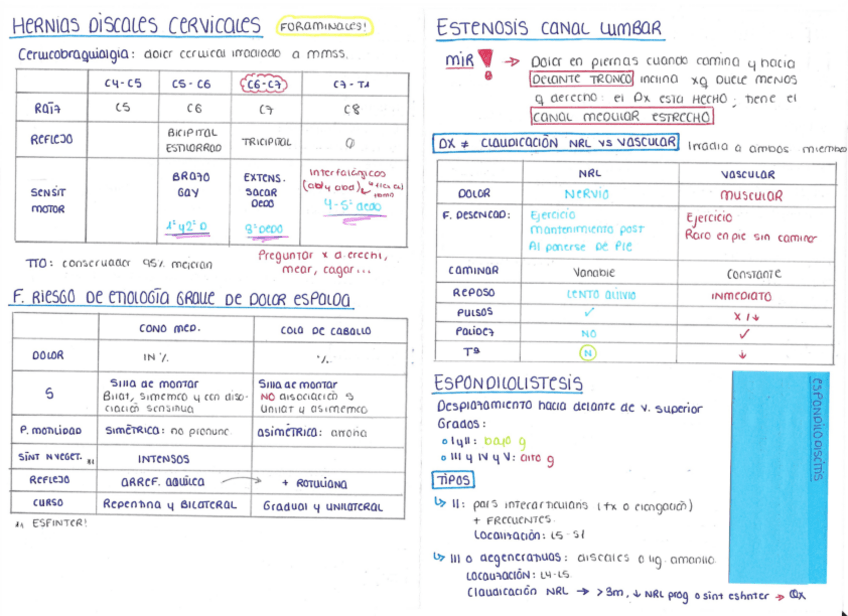 HERNIAS DISCALES CERVICALES FORAMINALES!
Cervicobraquialgia: dolor cervical irradiado a mmss.
C4-C5 C5-C6 C6-C7 C7-T1
RAÍZ C5 C6 C7 C8
REFLEJO BICIPITAL ESTILORRAD TRICIPITAL 0
SENSIT MOTOR
BRAZO GAY
1º y 2º D
EXTENS. SACAR DEDO
3º DEDO
Interfalángicos
(abd y abd)
4-5º dedo
TTO: conservador 95% mejoran
Preguntar x d erechi,
mear, cagar...
F. RIESGO DE ETIOLOGÍA GRAVE DE DOLOR ESPALDA
CONO MED. COLA DE CABALLO
DOLOR
S Silla de montar Silla de montar
Bilat, simemco y con diso- NO disociación s
ciación sensitiva Unilat y asimemco
P. MOTILIDAD SIMÉTRICA: no pronunc. ASIMÉTRICA: atrofia
SÍNT N VEGET. INTENSOS
REFLEJO ARREF. AQUÍLEA + ROTULIANA
CURSO Repentina y BILATERAL Gradual y UNILATERAL
ESFINTER!
ESTENOSIS CANAL LUMBAR
MIR ! → Dolor en piernas cuando camina y hacia
DELANTE TRONCO inclina xq duele menos
q derecho: el Dx esta HECHO; tiene el
CANAL MEDULAR ESTRECHO
DX ≠ CLAUDICACIÓN NRL VS VASCULAR Irradia a ambos miembro
NRL VASCULAR
DOLOR NERVIO MUSCULAR
F. DESENCAD: Ejercicio Ejercicio
Mantenimiento post Raro en pie sin caminar
Al ponerse DE PIE
CAMINAR Variable Constante
REPOSO LENTO ALIVIO INMEDIATO
PULSOS ✓ X/↓
PALIDEZ NO ✓
Tª N ↓
ESPONDILOLISTESIS
Desplazamiento hacia delante de v. superior
Grados:
I y II: bajo g
III y IV y V: alto g
TIPOS
II: pars interarticularis (fx o elongación)
+ FRECUENTES.
Localización: L5-S1
III o degenerativas: discales o lig. amarillo
Localización: L4-L5
Claudicación NRL → >3m, ↓ NRL prog o sint esfínter → Qx
ESPONDILODISCITIS